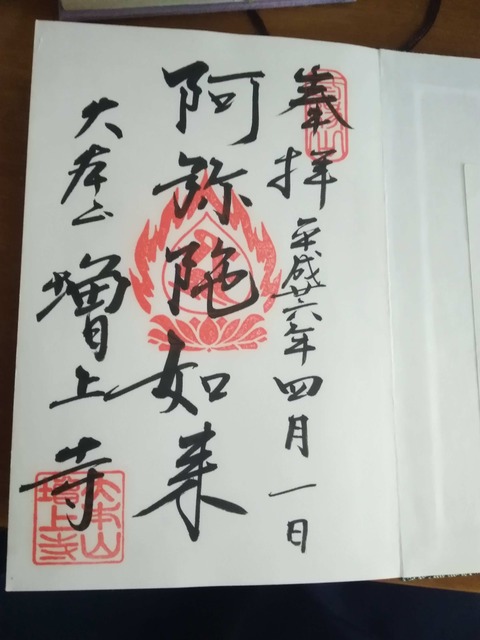 奉拝 平成廿六年四月一日
阿弥陀如来
大本山 増上寺
大本山
増上寺